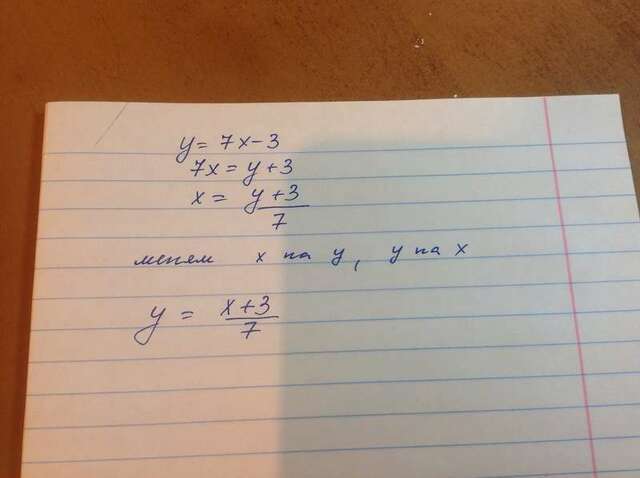 y = 7x - 3
7x = y + 3
x = \frac{y+3}{7}
меняем x на y, y на x
y = \frac{x+3}{7}